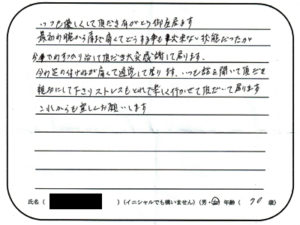 いつも優しくして頂きありがとう御座居ます
最初の頃から肩まで痛くてどうする事も出来ない状態だったが
今ではすっかり治して頂き大変感謝して居ります。
今は足の付け根が痛くて通院して居ります、いつも話を聞いて頂き
親切にして下さりストレスもとれて楽しく行かせて頂いて居ります
これからも宜しくお願いします
氏名( )(イニシャルでも構いません)(男・女)年齢( 70 歳)